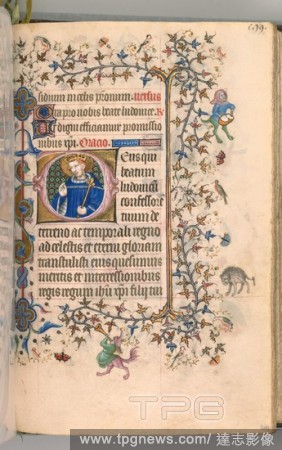 sidium in celis p̄ronum. Versus
Ora pro nobis beate ludouice. R̄
Ut digni efficiamur promissio
nibus xpi. Oracio.
Deus qui
beatum
ludouicū
confessorē
tuum de
terreno ac temporali regno
ad celestis et eterni gloriam
transtulisti eius quesumus
meritis et intercessionibus
regis regum ihū xpi filii tui
TPG
www.tpgnews.com/ 達志影像